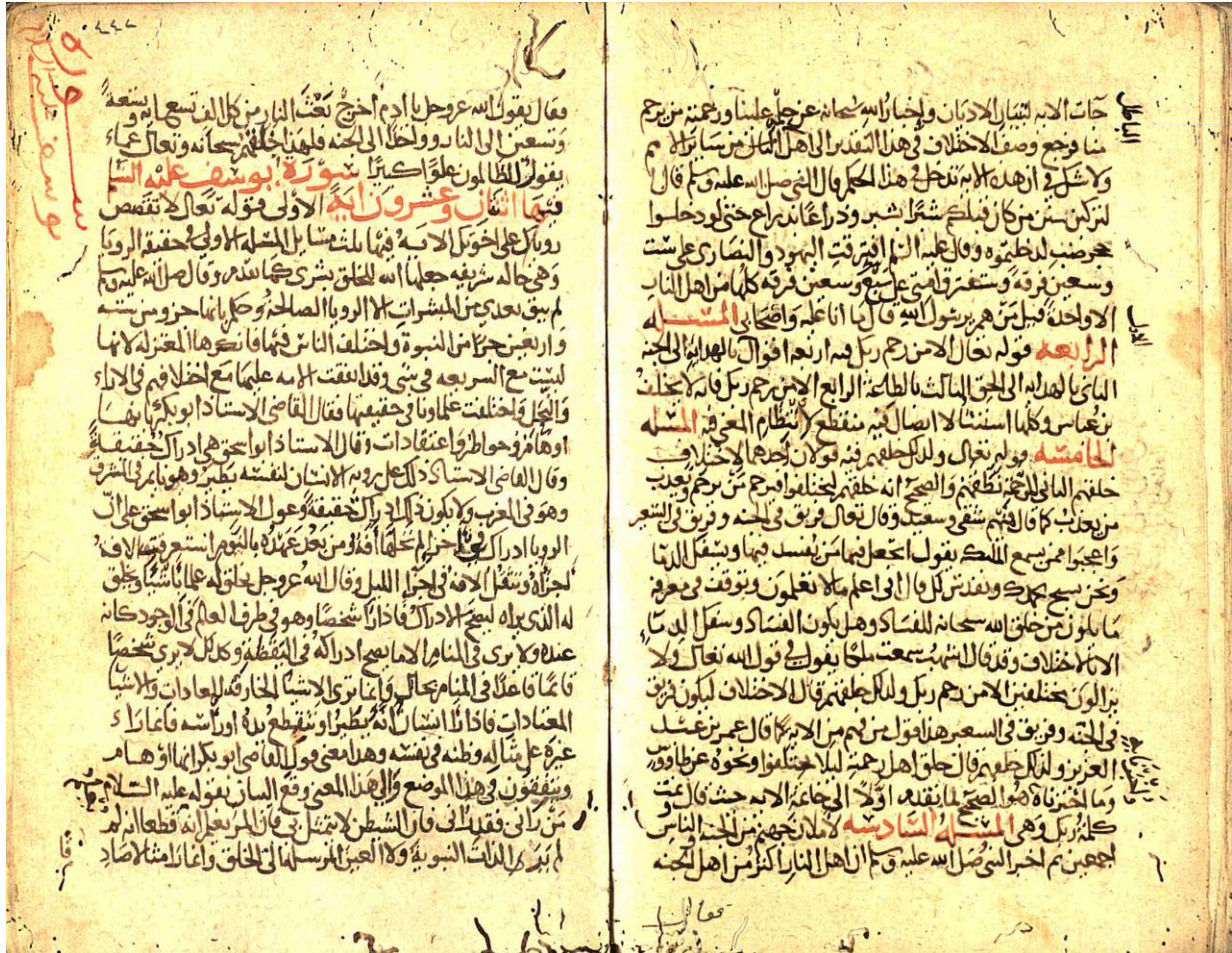 جات الآية لبيان الاديان واخبار الله سبحانه عن حكمه علينا ورحمته من يرحم
منا فرجع وصف الاختلاف في هذا التقدير الى اهل الباطل من سائر الامم
ولا شك في ان هذه الآية تدخل في هذا الحكم قال النبي صلى الله عليه وسلم قال
لتركبن سنن من كان قبلكم شبرا بشبر وذراعا بذراع حتى لو دخلوا
جحر ضب لدخلتموه وقال عليه السلم افترقت اليهود والنصارى على
وسبعين فرقة وستفترق امتي على وسبعين فرقة كلها من اهل النار
الا واحدة قيل من هم يرسول الله قال ما انا عليه واصحابي المسئله
الرابعه قوله تعالى الا من رحم ربك فيه اربعة اقوال بالهداية الى الجنة
الثاني بالهداية الى الحق الثالث بالطاعة الرابع الا من رحم ربك فانه لا يختلف
بن عباس وكلها استثنا لا اتصال فيه منقطع لانتظام المعنى فيه المسئله
الخامسه قوله تعالى ولذلك خلقهم فيه قولان احدهما الاختلاف
خلقهم الثاني للرحمة خلقهم والصحيح انه خلقهم ليختلفوا فيرحم من يرحم ويعذب
من يعذب كما قال فمنهم شقي وسعيد وقال تعالى فريق في الجنة وفريق في السعير
واعجبوا ممن يسمع الملك يقول اتجعل فيها من يفسد فيها ويسفك الدما
ونحن نسبح بحمدك ونقدس لك قال اني اعلم ما لا تعلمون ويتوقف في معرفة
ما يكون من خلق الله سبحانه للفساد وهل يكون الفساد وسفك الدما
الا بالاختلاف وقد قال اشهب سمعت ملكا يقول في قول الله تعالى ولا
يزالون مختلفين الا من رحم ربك ولذلك خلقهم قال الاختلاف ليكون فريق
في الجنة وفريق في السعير هذا قول من فهم من الآية كما قال عمر بن عبد
العزيز ولذلك خلقهم قال خلق اهل رحمته ليلا يختلفوا ونحوه عن طاووس
وما اخترناه هو الصحيح لما تقدم اولا الى خاتمة الآية حيث قال وتمت
كلمة ربك وهي المسئله السادسه لأملان جهنم من الجنة والناس
اجمعين ثم اخبر النبي صلى الله عليه وسلم ان اهل النار اكثر من اهل الجنة
الباطل
فقال
٤٤٧
سورة
يوسف عليه السلام
وقال يقول الله عز وجل يا ادم اخرج بعث النار من كل الف تسع مائة وتسعة
وتسعين الى النار وواحد الى الجنة فلهذا خلقهم سبحانه وتعالى عما
يقول الظالمون علوا كبيرا سورة يوسف عليه السلم
فيها اثنان وعشرون اية الاولى قوله تعالى لا تقصص
روياك على اخوتك الآية فيها ثلث مسايل المسئله الاولى في حقيقة الرويا
وهي حالة شريفه جعلها الله للخلق بشرى كما تقدم وقال صلى الله عليه وسلم
لم يبق بعدي من المبشرات الا الرويا الصالحة وحكم بانها جزو من ستة
واربعين جزءا من النبوة واختلف الناس فيها فانكرها المعتزله لانها
ليست مع الشريعه في شي وقد اتفقت الامه عليها مع اختلافهم في الاراء
والنحل واختلفت علماونا في حقيقتها فقال القاضي الاستاذ ابو بكر انها
اوهام وخواطر واعتقادات وقال الاستاذ ابو اسحق هي ادراك حقيقة
وقال القاضي الاستاذ ذلك على روية الانسان لنفسه يطير وهو نايم في المشرق
وهو في المغرب ولا يكون ذلك ادراك حقيقة وعول الاستاذ ابو اسحق على ان
الرويا ادراك في اجزا لم تحلها افة ومن بعد عهده بالنوم استغرقت الافة
اجزاه وتقل الافة في اخر الليل وقال الله عز وجل يخلق له علما ناشيا ويخلق
له الذي يراه ليصح الادراك فاذا راى شخصا وهو في طرف العالم فالوجود كانه
عنده ولا يرى في المنام الا ما يصح ادراكه في اليقظة وكذلك لا يرى شخصا
قائما قاعدا في المنام بحال وانما يرى الاشيا الخارقه للعادات والاشيا
المعتادات فاذا راى انسانا انه يطير او يقطع يده او راسه فانما راى
غيره على مثاله وظنه في نفسه وهذا معنى قول القاضي ابو بكر انها اوهام
ويتفقون في هذا الموضع والى هذا المعنى وقع البيان بقوله عليه السلام
من راني فقد راني فان الشيطن لا يتمثل بي فان المرء يعلم انه قطعا انه لم
ير الذات النبوية ولا العين المرسلة الى الخلق وانما راى مثالا صاد
قا